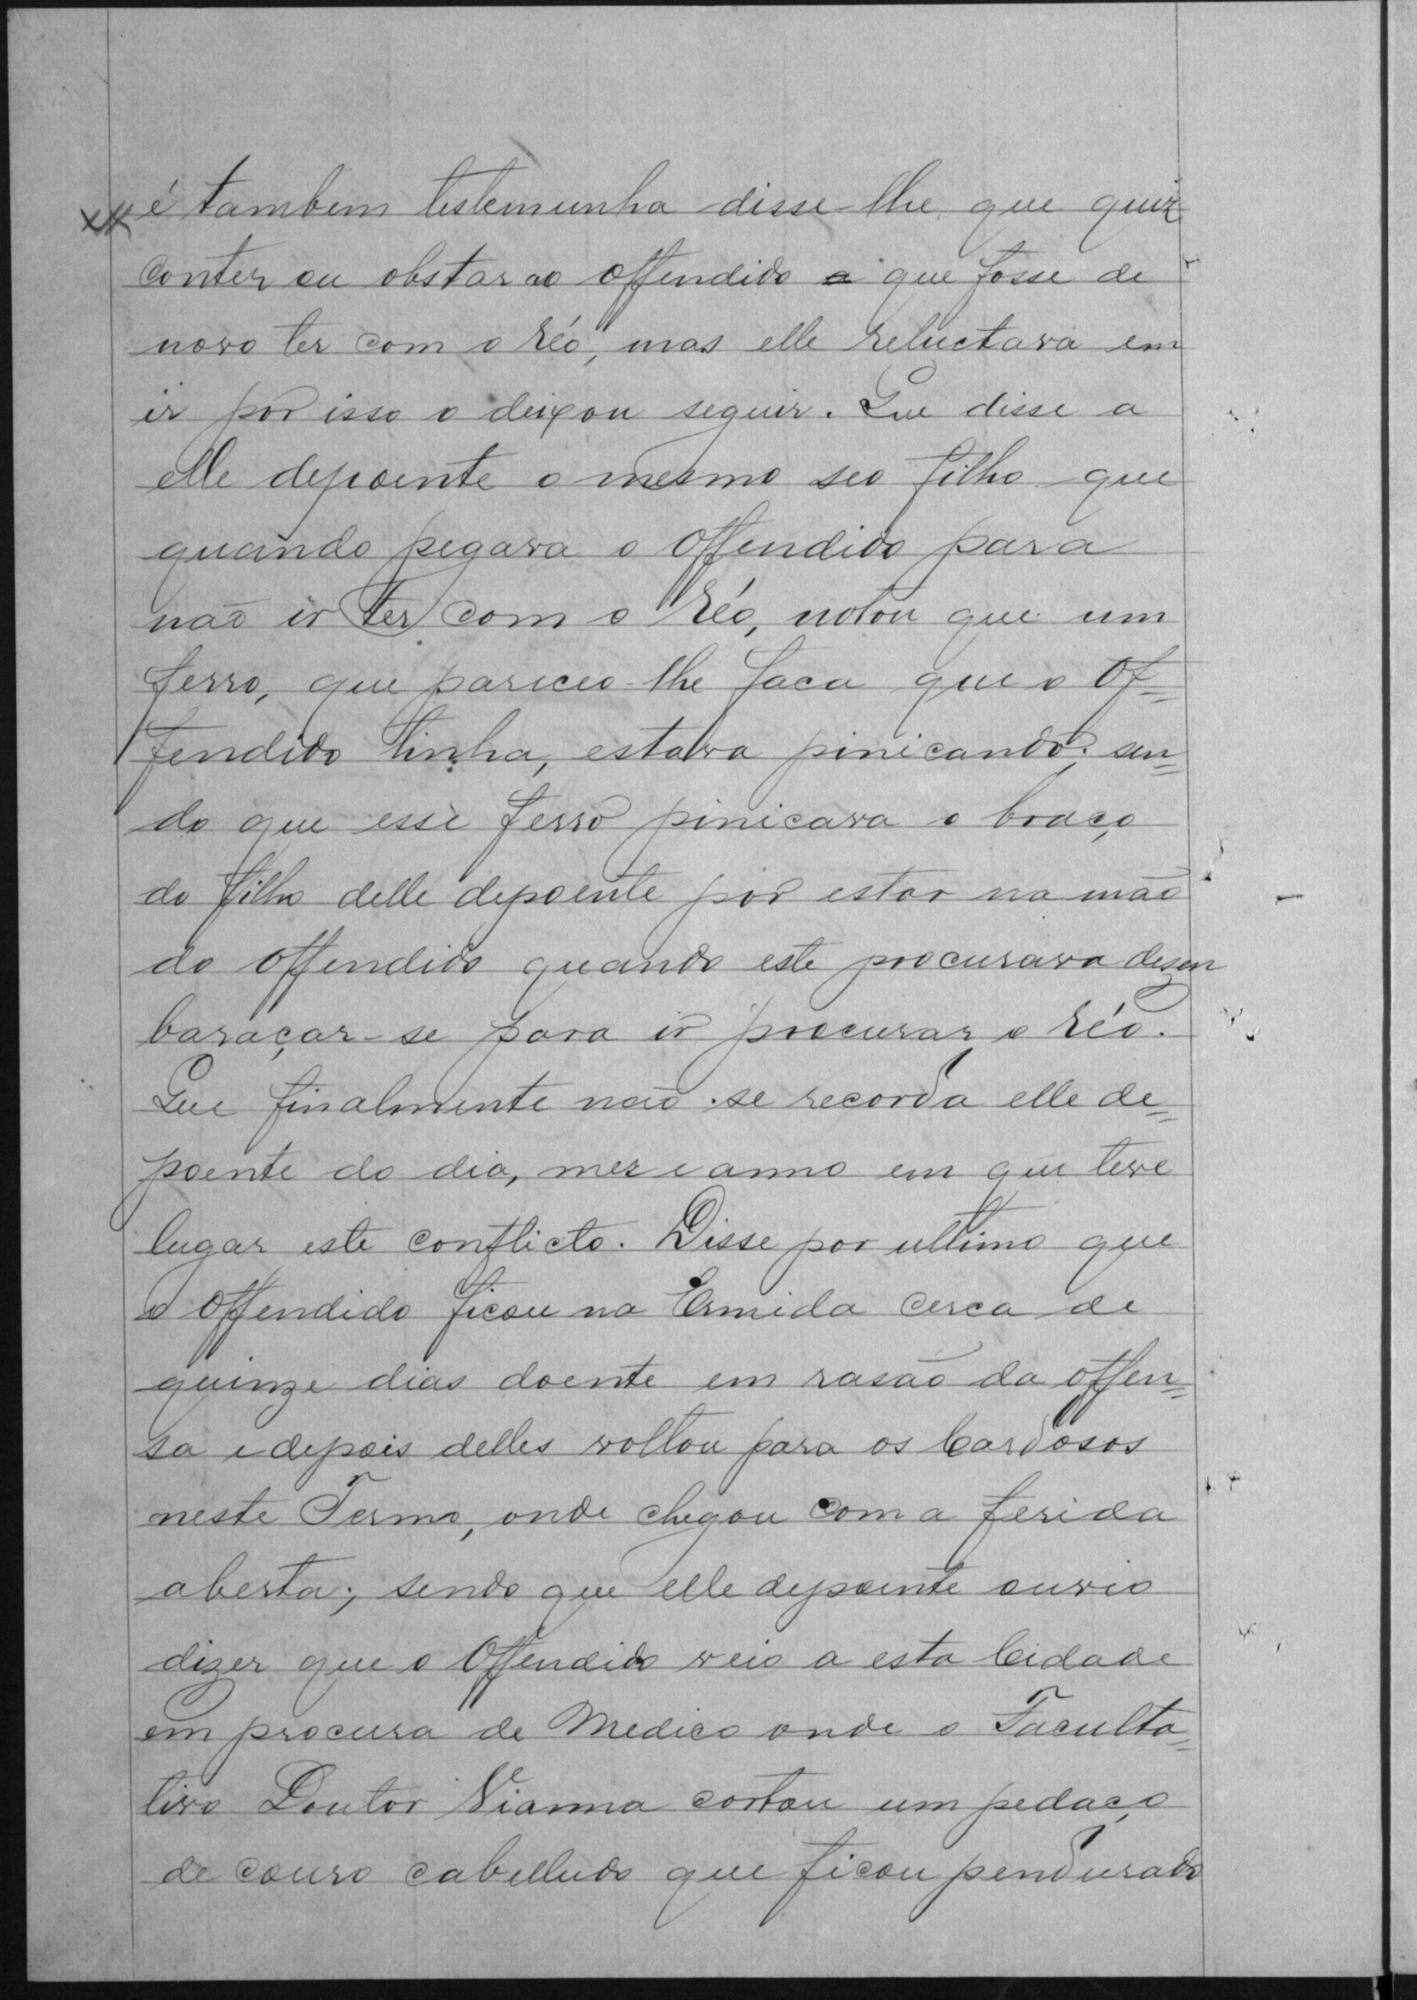 é tambem testemunha disse-lhe que quiz
conter ou obstar ao offendido a que fosse de
novo ter com o réo, mas elle reluctava em
ir por isso o deixou seguir. Que disse a
elle depoente o mesmo seo filho que
quando pegava o offendido para
não ir ter com o réo, notou que um
ferro, que pareceo-lhe faca que o of=
fendido tinha, estava pinicando; sen=
do que esse ferro pinicava o braço
do filho delle depoente por estar na mão
do offendido quando este procurava desem
baraçar-se para ir procurar o réo.
Que finalmente não se recorda elle de=
poente do dia, mez e anno em que teve
lugar este conflicto. Disse por ultimo que
o offendido ficou na Ermida cerca de
quinze dias doente em rasão da offen=
sa e depois delles voltou para os Cardosos
neste Termo, onde chegou com a ferida
aberta; sendo que elle depoente ouvio
dizer que o offendido veio a esta Cidade
em procura de Medico onde o Faculta=
tivo Doutor Vianna cortou um pedaço
de couro cabelludo que ficou pendurado